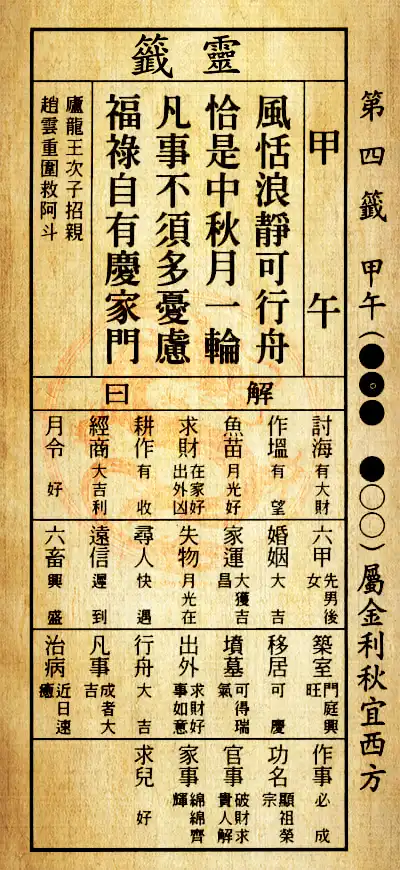 第四籤 甲午(●☉● ●○○)屬金利秋宜西方
靈籤
甲午
風恬浪靜可行舟
恰是中秋月一輪
凡事不須多憂慮
福祿自有慶家門
廬龍王次子招親
趙雲重圍救阿斗
解曰
討海 有大財
作塭 有望
魚苗 月光好
求財 在家好 出外凶
耕作 有收
經商 大吉利
月令 好
六甲 先男後女
婚姻 大吉
家運 大獲吉昌
失物 月光在
尋人 快遇
遠信 遲到
六畜 興盛
築室 門庭興旺
移居 可慶
墳墓 可得瑞氣
出外 求財好 事如意
行舟 大吉
凡事 成者大吉
治病 近日速癒
作事 必成
功名 顯祖榮宗
官事 破財求貴人解
家事 綿綿齊輝
求兒 好